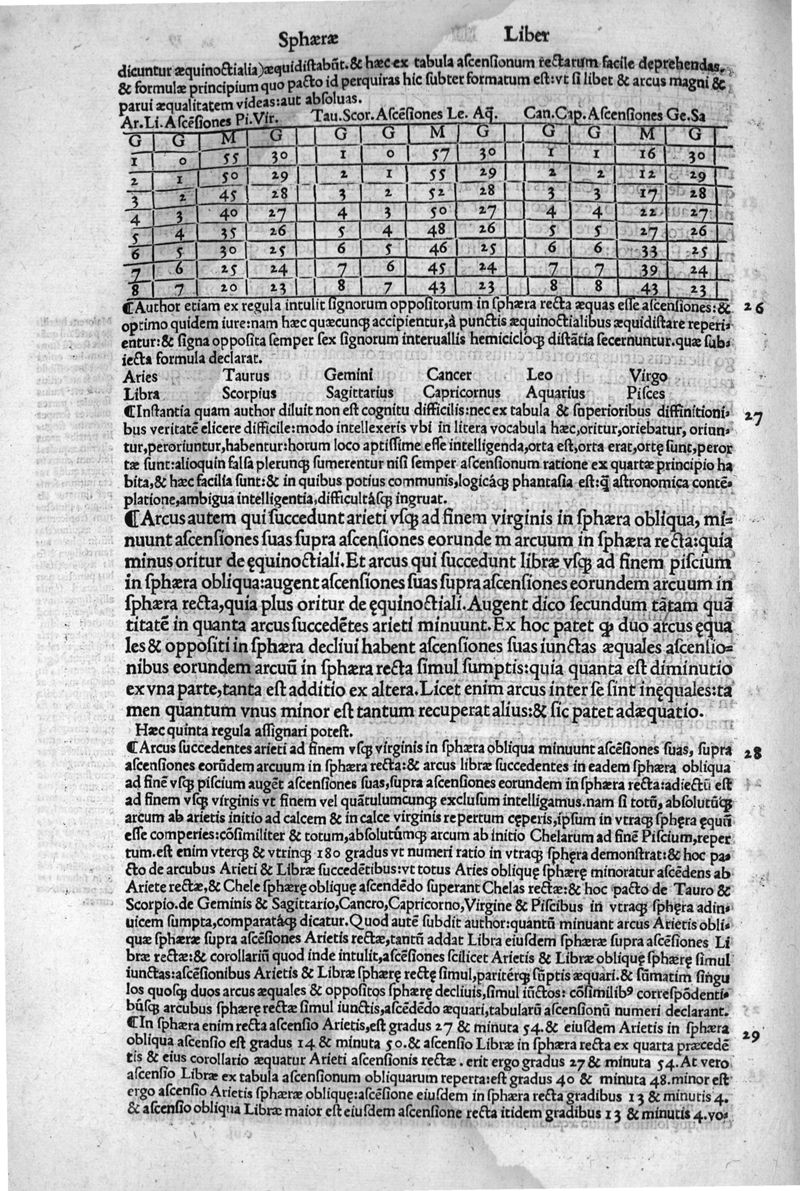 Sphæræ Liber
dicuntur æquinoctialia)æquidistabũt.& hæc ex tabula ascensionum rectarum facile deprehendas,
& formulæ principium quo pacto id perquiras hic subter formatum est:vt si libet & arcus magni &
parui æqualitatem videas:aut absoluas.
Ar.Li.Ascẽsiones Pi.Vir. Tau.Scor.Ascẽsiones Le. Aq̃. Can.Cap.Ascensiones Ge.Sa
G G M G G G M G G G M G
1 0 55 30 1 0 57 30 1 1 16 30
2 1 50 29 2 1 55 29 2 2 12 29
3 2 45 28 3 2 52 28 3 3 17 28
4 3 40 27 4 3 50 27 4 4 22 27
5 4 35 26 5 4 48 26 5 5 27 26
6 5 30 25 6 5 46 25 6 6 33 25
7 6 25 24 7 6 45 24 7 7 39 24
8 7 20 23 8 7 43 23 8 8 43 23
¶Author etiam ex regula intulit signorum oppositorum in sphæra recta æquas esse ascensiones:& 26
optimo quidem iure:nam hæc quæcunqꝫ accipientur,à punctis æquinoctialibus æquidistare reperi-
entur:& signa opposita semper sex signorum interuallis hemicicloqꝫ distãtia secernuntur.quæ sub-
iecta formula declarat.
Aries Taurus Gemini Cancer Leo Virgo
Libra Scorpius Sagittarius Capricornus Aquarius Pisces
¶Instantia quam author diluit non est cognitu difficilis:nec ex tabula & superioribus diffinitioni- 27
bus veritatẽ elicere difficile:modo intellexeris vbi in litera vocabula hæc,oritur,oriebatur, oriun-
tur,peroriuntur,habentur:horum loco aptissime esse intelligenda,orta est,orta erat,ortę sunt,peror
tæ sunt:alioquin falsa plerunqꝫ sumerentur nisi semper ascensionum ratione ex quartæ principio ha
bita,& hæc facilia sunt:& in quibus potius communis,logicáqꝫ phantasia est:q̃ astronomica contẽ-
platione,ambigua intelligentia,difficultásqꝫ ingruat.
¶Arcus autem qui succedunt arieti vsqꝫ ad finem virginis in sphæra obliqua, mi-
nuunt ascensiones suas supra ascensiones eorunde m arcuum in sphæra recta:quia
minus oritur de ęquinoctiali.Et arcus qui succedunt libræ vsqꝫ ad finem piscium
in sphæra obliqua:augent ascensiones suas supra ascensiones eorundem arcuum in
sphæra recta,quia plus oritur de ęquinoctiali.Augent dico secundum tãtam quã
titatẽ in quanta arcus succedẽtes arieti minuunt. Ex hoc patet ꝙ duo arcus ęqua
les & oppositi in sphæra decliui habent ascensiones suas iunctas æquales ascensio-
nibus eorundem arcuũ in sphæra recta simul sumptis:quia quanta est diminutio
ex vna parte,tanta est additio ex altera.Licet enim arcus inter se sint inęquales:ta
men quantum vnus minor est tantum recuperat alius:& sic patet adæquatio.
Hæc quinta regula assignari potest.
¶Arcus succedentes arieti ad finem vsqꝫ virginis in sphæra obliqua minuunt ascẽsiones suas, supra 28
ascensiones eorũdem arcuum in sphæra recta:& arcus libræ succedentes in eadem sphæra obliqua
ad finẽ vsqꝫ piscium augẽt ascensiones suas,supra ascensiones eorundem in sphæra recta:adiectũ est
ad finem vsqꝫ virginis vt finem vel quãtulumcunqꝫ exclusum intelligamus.nam si totũ, absolutũqꝫ
arcum ab arietis initio ad calcem & in calce virginis repertum cęperis,ipsum in vtraqꝫ sphęra ęquũ
esse comperies:cõsimiliter & totum,absolutũmqꝫ arcum ab initio Chelarum ad finẽ Piscium,reper
tum.est enim vterqꝫ & vtrinqꝫ 180 gradus vt numeri ratio in vtraqꝫ sphęra demonstrat:& hoc pa-
cto de arcubus Arieti & Libræ succedẽtibus:vt totus Aries obliquę sphærę minoratur ascẽdens ab
Ariete rectæ,& Chele sphærę obliquę ascendẽdo superant Chelas rectæ:& hoc pacto de Tauro &
Scorpio.de Geminis & Sagittario,Cancro,Capricorno,Virgine & Piscibus in vtraqꝫ sphęra adin-
uicem sumpta,comparatáqꝫ dicatur. Quod autẽ subdit author:quantũ minuant arcus Arietis obli-
quæ sphæræ supra ascẽsiones Arietis rectæ,tantũ addat Libra eiusdem sphæræ supra ascẽsiones Li
bræ rectæ:& corollariũ quod inde intulit,ascẽsiones scilicet Arietis & Libræ obliquę sphærę simul
iunctas:ascẽsionibus Arietis & Libræ sphærę rectę simul,paritérqꝫ sũptis æquari.& sũmatim singu
los quosqꝫ duos arcus æquales & oppositos sphærę decliuis,simul iũctos: cõsimilibꝰ correspõdenti-
búsqꝫ arcubus sphærę rectæ simul iunctis,ascẽdẽdo æquari,tabularũ ascensionũ numeri declarant.
¶In sphæra enim recta ascensio Arietis,est gradus 27 & minuta 54.& eiusdem Arietis in sphæra 29
obliqua ascensio est gradus 14 & minuta 50.& ascensio Libræ in sphæra recta ex quarta præcedẽ
tis & eius corollario æquatur Arieti ascensionis rectæ . erit ergo gradus 27 & minuta 54. At vero
ascensio Libræ ex tabula ascensionum obliquarum reperta:est gradus 40 & minuta 48.minor est
ergo ascensio Arietis sphæræ obliquę:ascẽsione eiusdem in sphæra recta gradibus 13 & minutis 4.
& ascensio obliqua Libræ maior est eiusdem ascensione recta itidem gradibus 13 & minutis 4.vo-